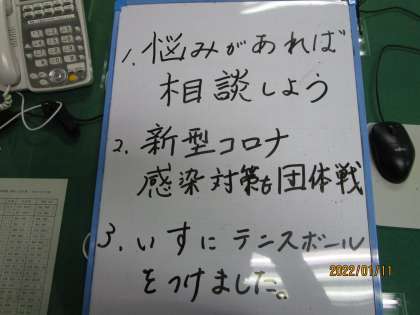 1. 悩みがあれば
相談しよう
2. 新型コロナ
感染対策も団体戦
3. いすにテニスボール
をつけました。
2022/01/11